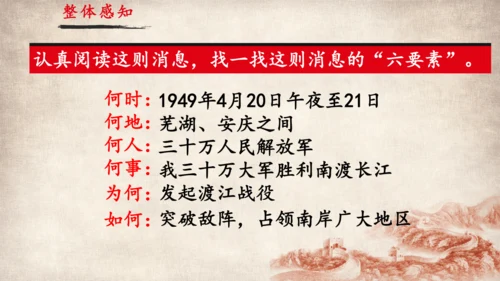 整体感知
认真阅读这则消息，找一找这则消息的“六要素”。
何时：1949年4月20日午夜至21日
何地：芜湖、安庆之间
何人：三十万人民解放军
何事：我三十万大军胜利南渡长江
为何：发起渡江战役
如何：突破敌阵，占领南岸广大地区